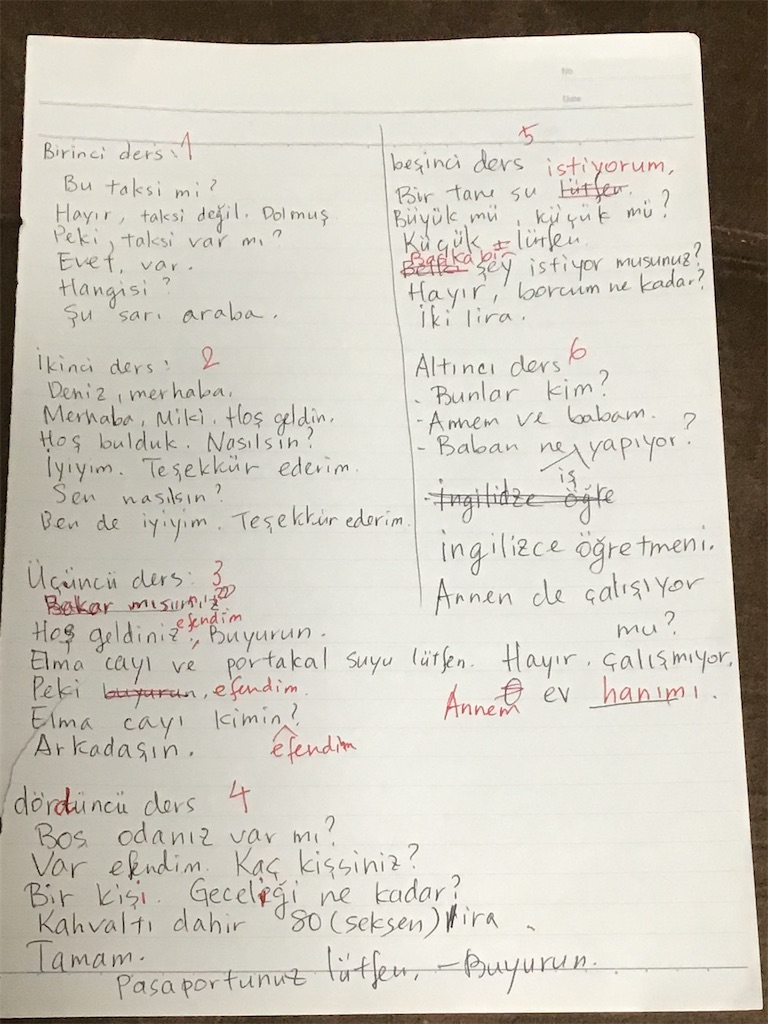 Birinci ders: 1
Bu taksi mi?
Hayır, taksi değil. Dolmuş
Peki, taksi var mı?
Evet, var.
Hangisi?
Şu sarı araba.
İkinci ders: 2
Deniz, merhaba.
Merhaba, Miki. Hoş geldin.
Hoş bulduk. Nasılsın?
İyiyim. Teşekkür ederim.
Sen nasılsın?
Ben de iyiyim. Teşekkür ederim.
Üçüncü ders: 3
Bakar mısınız
efendim
Hoş geldiniz, Buyurun.
Elma cayı ve portakal suyu lütfen.
Peki buyurun, efendim.
Elma cayı kimin?
efendim
Arkadaşın.
dördüncü ders 4
Bos odanız var mı?
Var efendim. Kaç kişsiniz?
Bir kişi. Geceliği ne kadar?
Kahvaltı dahir 80 (seksen) lira.
Tamam.
Pasaportunuz lütfen. -Buyurun.
5
beşinci ders istiyorum,
Bir tane su lütfen.
Büyük mü, küçük mü?
Küçük lütfen.
Başka bir
Belki şey istiyor musunuz?
Hayır, borcum ne kadar?
İki lira.
Altıncı ders 6
- Bunlar kim?
- Annem ve babam.
- Baban ne yapıyor?
iş
- İngilidze öğre
ingilizce öğretmeni.
Annen de çalışıyor
mu?
Hayır. çalışmıyor.
Annem O ev hanımı.